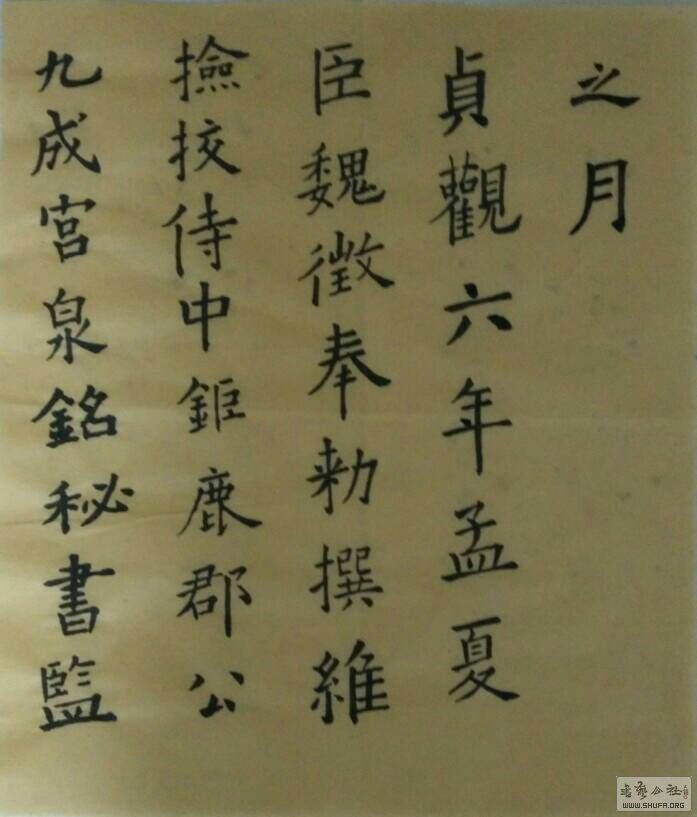 九成宮泉銘秘書監
撿挍侍中鉅鹿郡公
臣魏徵奉勑撰維
貞觀六年孟夏
之月
WWW.SHUFA.ORG